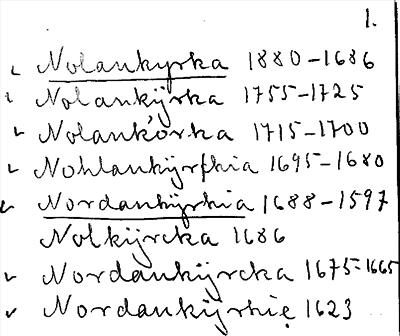 1.
✓ Nolankyrka 1880–1686
✓ Nolankÿrka 1755–1725
✓ Nolankórka 1715–1700
✓ Nohlankÿrkia 1695–1680
✓ Nordankÿrkia 1688–1597
Nolkÿrcka 1686
✓ Nordankÿrcka 1675–1665
✓ Nordankÿrkie 1623